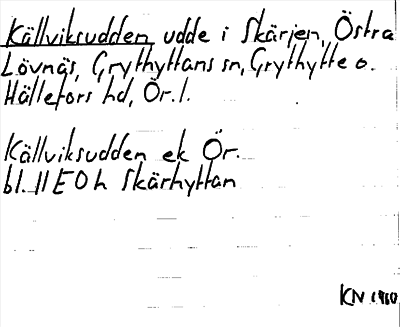 Källviksudden udde i Skärjen, Östra
Lövnäs, Grythyttans sn, Grythytte o.
Hällefors hd, Ör. l.
Källviksudden ek Ör.
bl. 11 E 0 h Skärhyttan
KN 1980